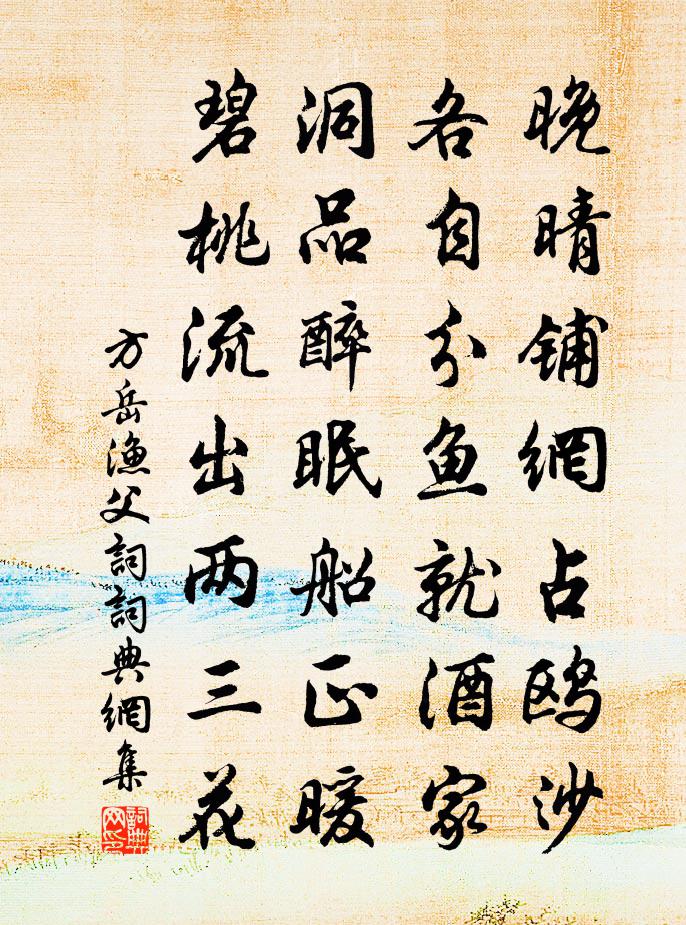 晚晴铺網占鸥沙
各自分鱼就酒家
洞品醉眠船正暖
碧桃流出两三花
方岳渔父詞詞典網集
詞典
网印